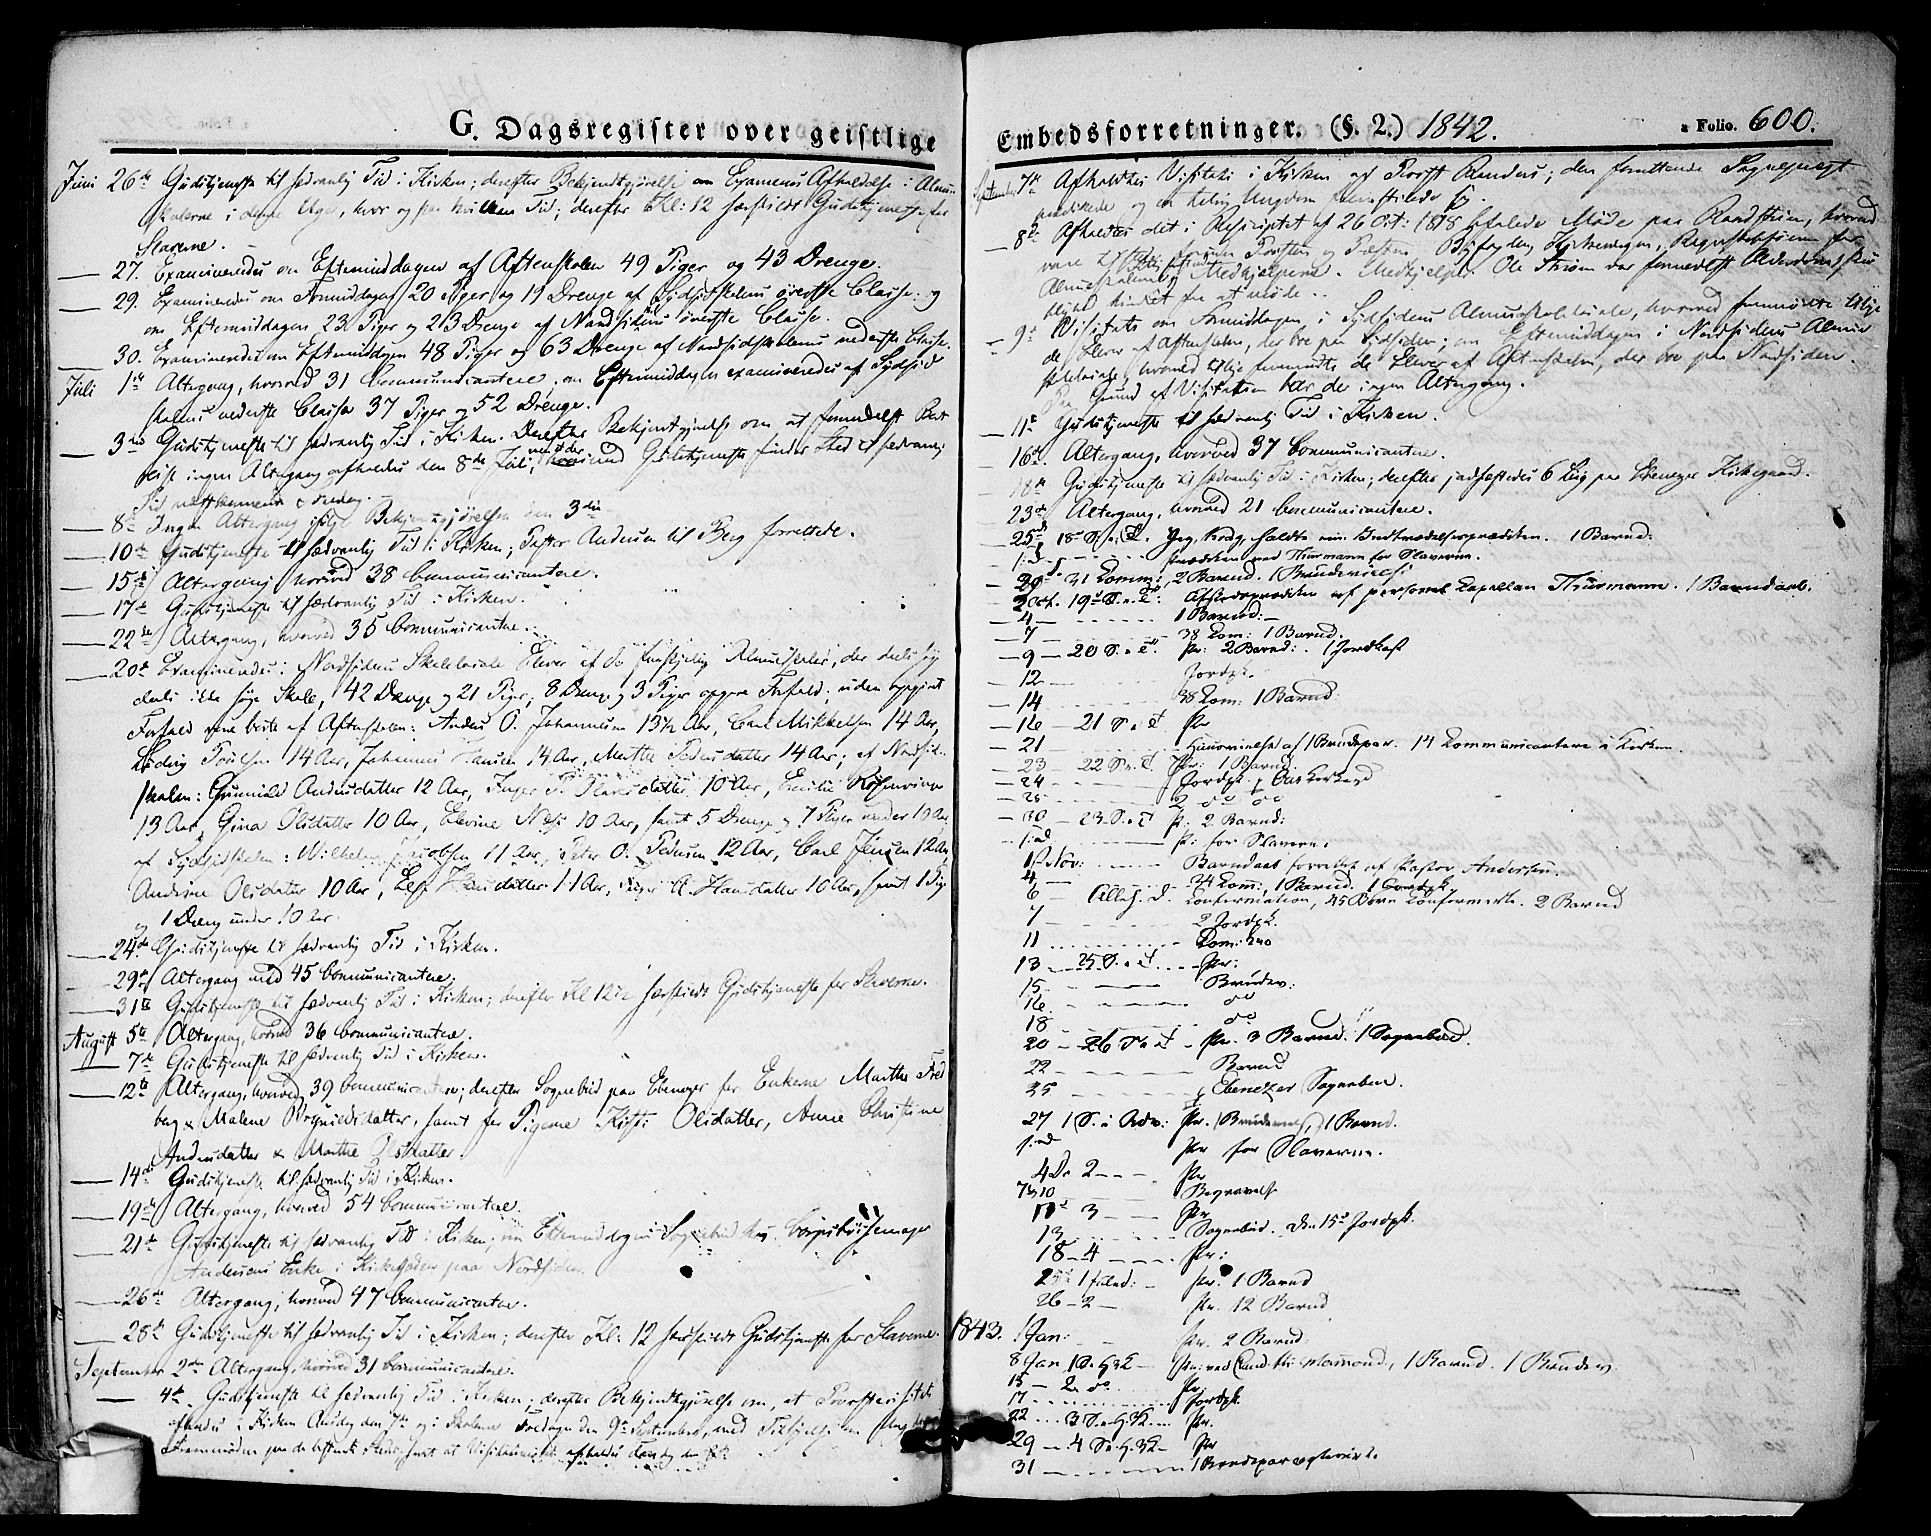 G. Dagsregister over geistlige
Juni 26de Gudstjeneste til sædvanlig Tid i Kirken; derefter Bekjendtgjørelse om Examens Afholdelse i Almue
skolerne i denne Uge, hvor og paa hvilken Tid; derefter Kl: 12 særskildt Gudstjeneste for
Slaverne.
27. Examineredes om Eftermiddagen af Aftenskolen 49 Piger og 43 Drenge.
29. Examineredes om Formiddagen 20 Piger og 19 Drenge af Sydsidskolens øverste Classe; og
om Eftermiddagen 23 Piger og 23 Drenge af Nordsidens øverste Classe.
30. Examineredes om Eftermiddagen 48 Piger og 63 Drenge af Nordsidskolens nederste Classe.
Juli 1ste Altergang, hvorved 31 Communicantere. om Eftermiddagen examineredes af Sydsid
skolens nederste Classe 37 Piger og 52 Drenge.
3die Gudstjeneste til sædvanlig Tid i Kirken. Derefter Bekjendtgjørelse om, at formedelst
ingen Altergang afholdes den 8de Juli, Gudstjeneste finder Sted til sædvanlig
Tid næstkommende Søndag.
8de Ingen Altergang ifølge Bekjendtgjørelsen den 3die
10de Gudstjeneste til sædvanlig Tid i Kirken; Pastor Andersen til Berg forrettede.
15de Altergang, hvorved 38 Communicantere.
17de Gudstjeneste til sædvanlig Tid i Kirken.
22de Altergang, hvorved 35 Communicantere.
20de Examineredes i Nordsidens Skolelocale Elever af de forskjellige Almueskoler, der deels
deels ikke søge Skole, 42 Drenge og 21 Piger; 8 Drenge og 3 Piger opgave Forfald; uden opgivet
Forfald vare borte af Aftenskolen: Anders O. Johannesen 13½ Aar, Carl Mikkelsen 14 Aar,
Ludvig Poulsen 14 Aar, Johannes Hansen 14 Aar, Marthe Pedersdatter 14 Aar; af Nordsid
skolen: Gunnild Andersdatter 12 Aar, Inger Olavesdatter 10 Aar, Emilie Rosenvinge
13 Aar, Gina Olsdatter 10 Aar, Elevine Næss 10 Aar, samt 5 Drenge og 7 Piger under 10 Aar
af Sydsidskolen: Wilhelm Jacobsen 11 Aar, Peter O. Pedersen 12 Aar, Carl Jensen 12 Aar
Andrine Olsdatter 10 Aar, Hansdatter 11 Aar, Inger A. Hansdatter 10 Aar, samt 1 Pige
og 1 Dreng under 10 Aar.
24de Gudstjeneste til sædvanlig Tid i Kirken.
29de Altergang med 45 Communicantere.
31te Gudstjeneste til sædvanlig Tid i Kirken; derefter Kl 12½ særskildt Gudstjeneste for Slaverne.
August 5te Altergang, hvorved 36 Communicantere.
7de Gudstjeneste til sædvanlig Tid i Kirken.
12te Altergang, hvorved 39 Communicantere; derefter Sognebud paa Ebenezer for Enkerne Marthe Fred
berg & Malene Brynildsdatter, samt for Pigerne Kirsti Olsdatter, Anne Christine
Andersdatter & Marthe Olsdatter.
14de Gudstjeneste til sædvanlig Tid i Kirken.
19de Altergang, hvorved 54 Communicantere.
21de Gudstjeneste til sædvanlig Tid i Kirken, om Eftermiddagen Sognebud hos Corpsbøssemager
Andersens Enke i Kirkegaden paa Nordsiden.
26de Altergang, hvorved 47 Communicantere.
28de Gudstjeneste til sædvanlig Tid i Kirken; derefter Kl: 12 særskildt Gudstjeneste for Slaverne.
September 2den Altergang, hvorved 31 Communicantere.
4de Gudstjeneste til sædvanlig Tid i Kirken, derefter Bekjendtgjørelse om, at Provstevisitats
afholdes i Kirken Onsdag den 7de og i Skolerne Fredagen den 9de September, med Tilføielse om
Fremmøden paa de bestemte Steder, samt at afholdes Torsdag den 8de
Embedsforretninger. (§. 2.) 1842. Folio. 600.
September 7de Afholdtes Visitats i Kirken af Provst Randers; den forrettende Sognepræst
prædikede og en talrig Ungdom
8de Afholdtes det i Rescriptet af 26 Oct: 1818 befalede Møde paa Raadstuen, hvorved
vare tilstede foruden Provsten og Præsten Byfogden, Kirkeværgen, Regnskabsføreren for
Almueskolerne, Medhjelperne. Medhjelper Ole Strøm var formedelst Alderdomssvag
lighed hindret fra at møde.
9de Visitats om Formiddagen i Sydsidens Almueskolelocale, hvorved fremmødte tillige
de Elever af Aftenskolen, der boe paa Sydsiden; om Eftermiddagen i Nordsidens Almue
skolelocale, hvorved tillige fremmødte de Elever af Aftenskolen, der boe paa Nordsiden.
Paa Grund af Visitatsen var der ingen Altergang.
11te Gudstjeneste til sædvanlig Tid i Kirken.
16de Altergang, hvorved 37 Communicantere.
18de Gudstjeneste til sædvanlig Tid i Kirken; derefter jordfæstedes 6 Liig paa Ebenezer Kirkegaard.
23de Altergang, hvorved 21 Communicantere.
25de 18 S. e. T. Jeg, Hvdg, holdt min Indtrædelsesprædiken. 1 Barned.
s: d. Prædiken ved Thurmann for Slaverne.
30 31 Comm:, 2 Barned. 1 Brudevielse
2 Oct. 19de S. e. T: Afskedsprædiken af personel Capellan Thurmann. 1 Barnedaab.
4 1 Barned:
7 38 Com: 1 Barned.
9 20 S. e. T. Pr: 2 Barned: 1 Jordkast
12 Jordpk.
14 38 Com: 1 Barned:
16 21 S. e. T Pr
21 Huusvielse af 1 Brudepar. 14 Communicantere i Kirken.
23 22 S. e. T. Pr: 1 Barned.
24 Jordpk.
25 2 do do
30 23 S. e. T Pr: 2 Barned:
s: d Pr: for Slaverne.
1st Nov: Barndaab forrettet af Pastor Andersen.
4 34 Com:, 1 Barned. 1 Jordpk.
6 Alleh. D. Confirmation, 45 Børn Confirmerte. 2 Barned
7 2 Jordpk.
11 Com:
13 25 S. e T Pr:
15 Brudev:
16 do
18 do
20 26 S e T Pr. 3 Barned. 1 Sognebud.
22 Barned
25 Ebenezer Sognebud.
27 1 S. i Adv: Pr. 1 Brudevielse, 1 Barned.
s: d Pr for Slaverne.
4 De 2 Pr
7 & 10 Begravelse
11te 3 Pr
13 Sognebud. Den 15de Jordpk.
18 4 Pr:
25de 1 Juled: Pr. 1 Barned
26 2 Pr. 12 Barned
1843. 1 Jan: Pr. 2 Barned:
8 Jan, 1 S. H3K Pr: ved Cand: Mamond, 1 Barned. 1 Brudev.
15 2 do Pr
17 Jordpk.
22 3 S. e. H. 3K. Pr.
29 4 S. e. H. 3K Pr
31 1 Brudepar egteviet.